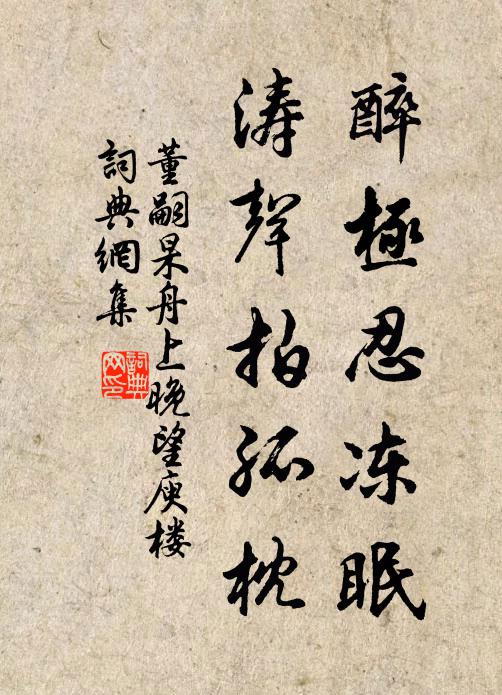 醉極忍冻眠
涛聲拍孤枕
董嗣杲舟上晚望庾楼
詞典網集
詞典网印